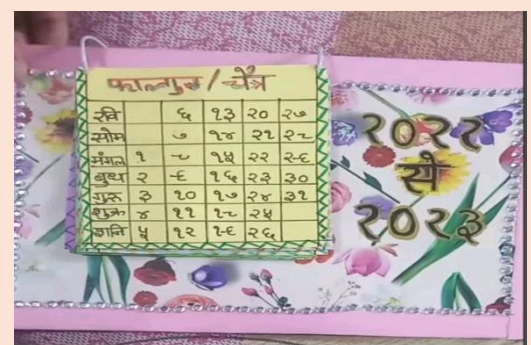 फाल्गुन / चैत्र
रवि ६ १३ २० २७
सोम ७ १४ २१ २८
मंगल १ ८ १५ २२ २९
बुध २ ९ १६ २३ ३०
गुरु ३ १० १७ २४ ३१
शुक्र ४ ११ १८ २५
शनि ५ १२ १९ २६
२०२२
से
२०२३